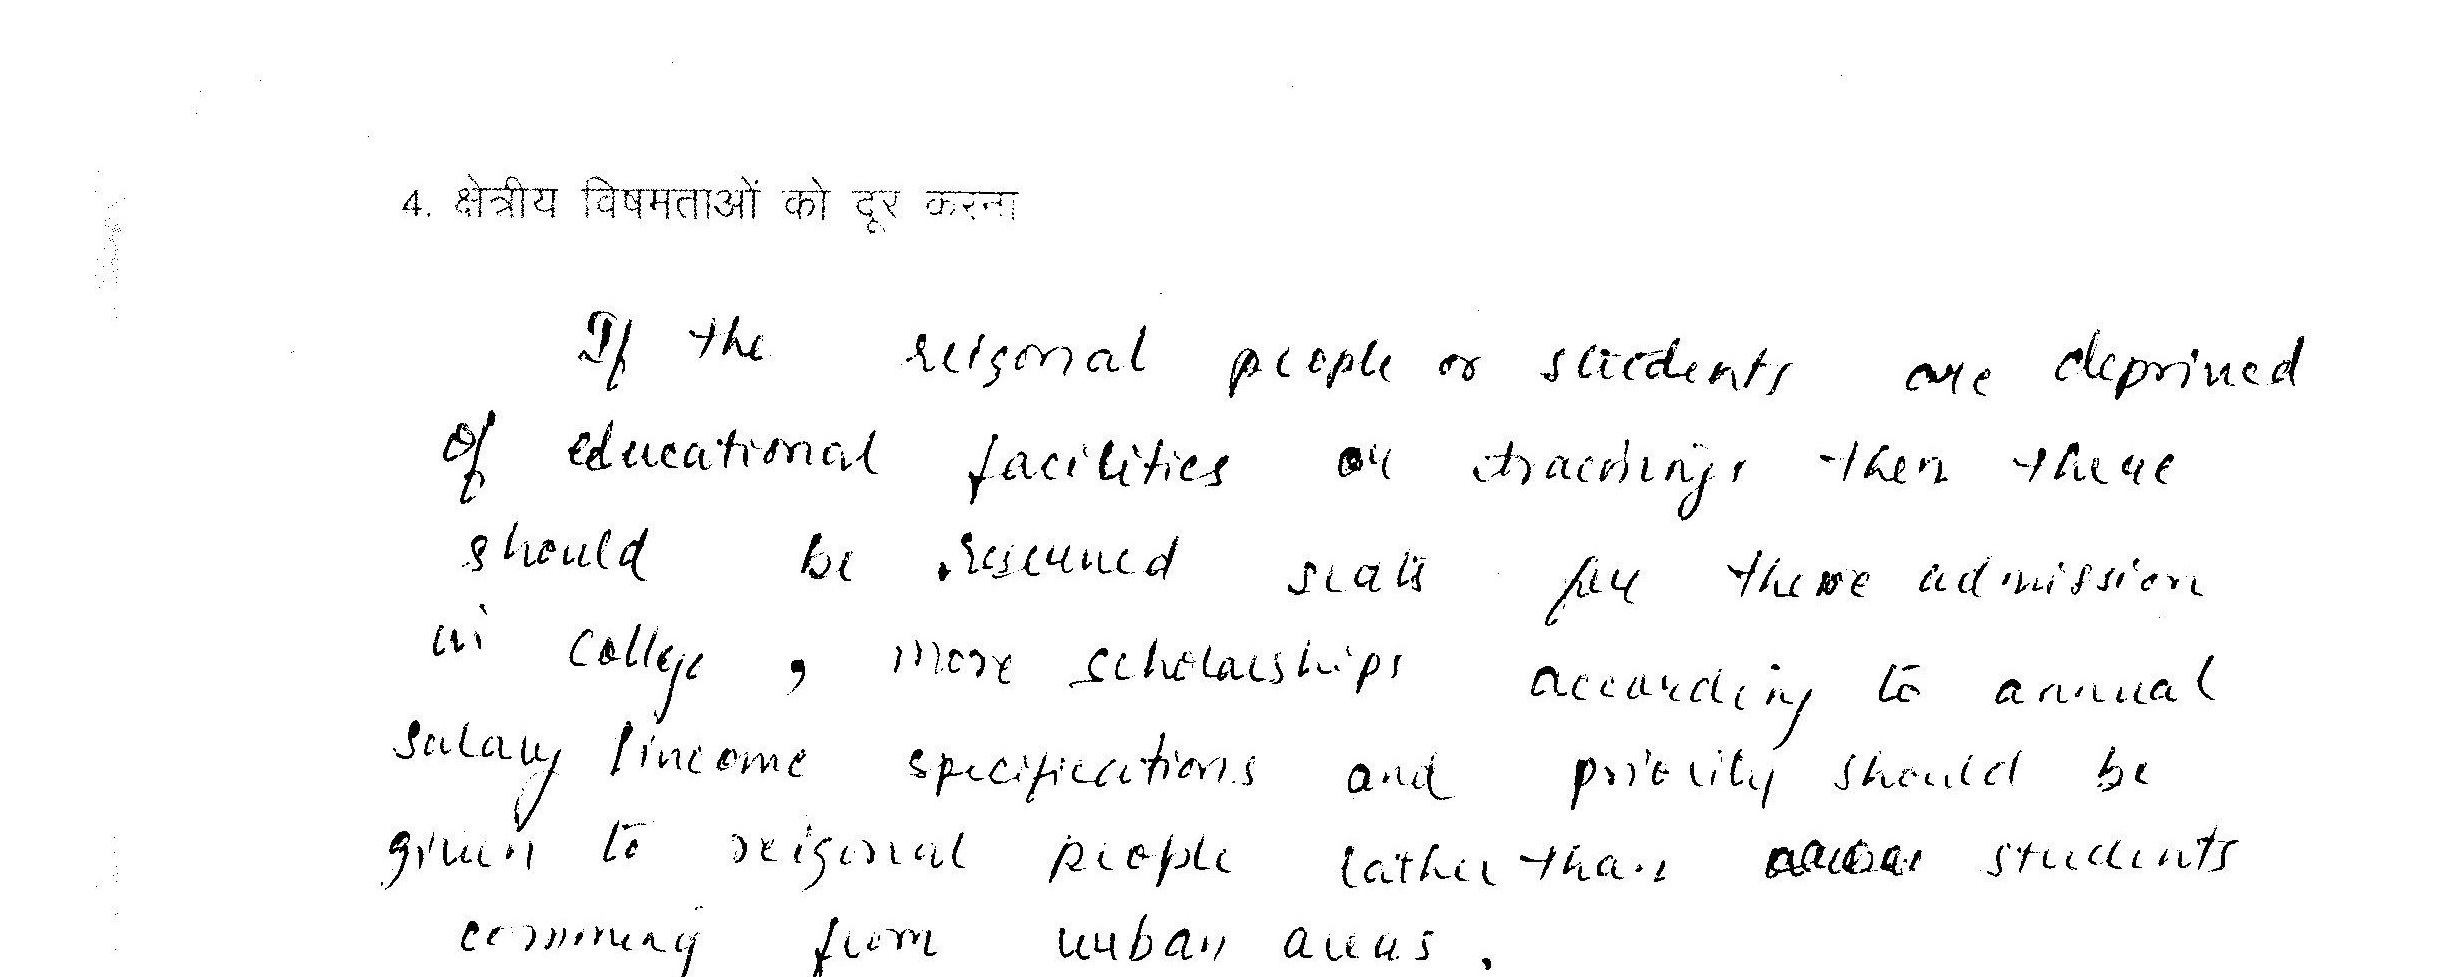 4. क्षेत्रीय विषमताओं को दूर करना
If the reigonal people or students are deprived
of educational facilities or trainings then there
should be reserved seats for there admission
in college , more scholarships according to annual
salary / income specifications and priority should be
given to reigonal people rather than students
comming from urban areas .